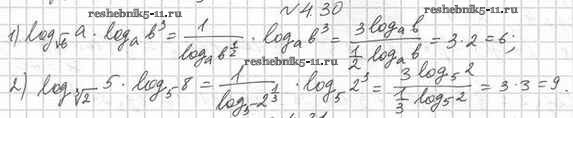 №4.30
reshebnik5-11.ru reshebnik5-11.ru
1) log_√b a · log_a b³ = 1/(log_a b^(1/2)) · log_a b³ = (3 log_a b)/(1/2 log_a b) = 3·2 = 6;
2) log_∛2 5 · log_5 8 = 1/(log_5 2^(1/3)) · log_5 2³ = (3 log_5 2)/(1/3 log_5 2) = 3·3 = 9.